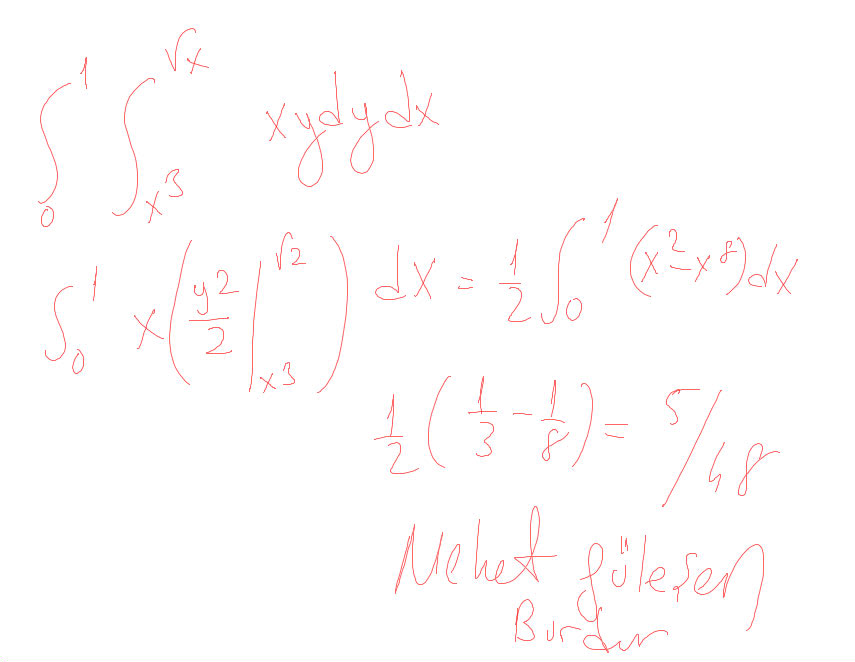 ∫₀¹ ∫ₓ³^√x xydydx
∫₀¹ x(y2/2 |ₓ3^√2) dx = 1/2 ∫₀¹ (x²-x⁸)dx
1/2 (1/3 - 1/8) = 5/48
Mehet gülesen
Burdur